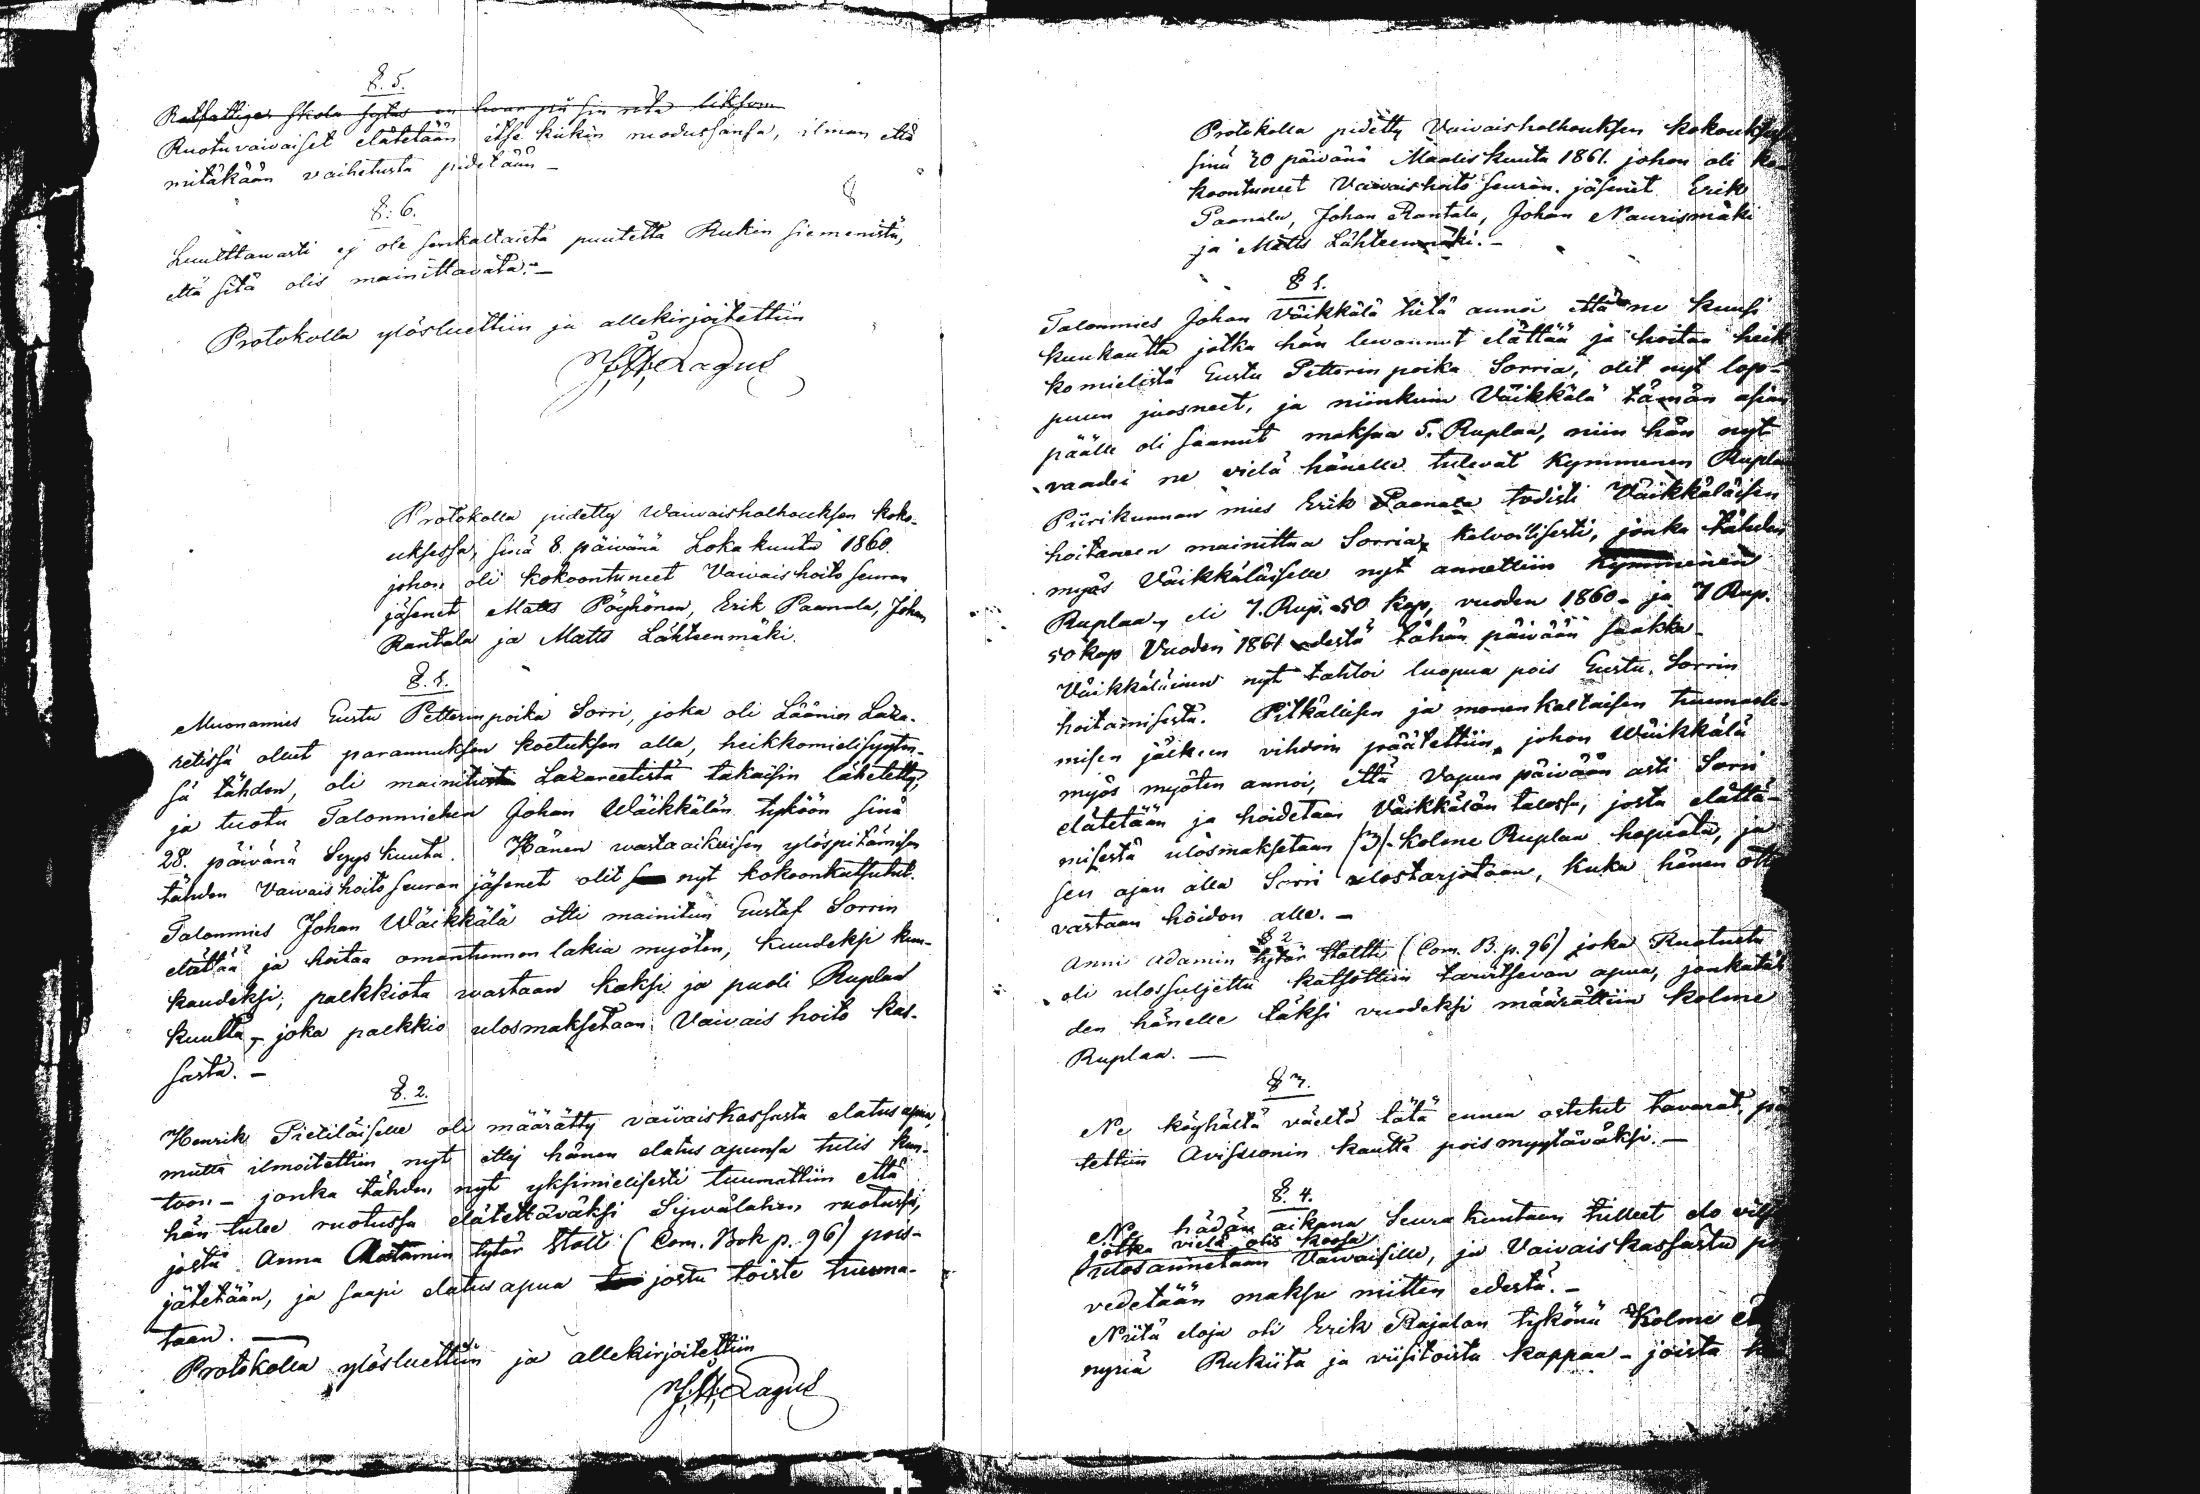 §. 5.
Ruotuvaivaiset elätetään itse kukin ruodussansa, ilman että
mitäkään vaihetusta pidetään –
§: 6.
Luulttawasti ej ole senkaltaista puutetta Rukin siemenistä,
että sitä olis mainittavata. –
Protokolla ylösluettiin ja allekirjoitettiin
Lagus
Protokolla pidetty Waivaisholhouksen koko-
uksessa, sinä 8. päivänä Loka kuuta 1860.
johon oli kokoontuneet Vaivaishoito seuran
jäsenet Matts Pöyhönen, Erik Paanala, Johan
Rantala ja Matts Lähteenmäki.
§. 1.
Muonamies Gustu Petterinpoika Sorri, joka oli Läänin Laza-
retissä ollut parannuksen koetuksen alla, heikkomielisyyten-
sä tähden, oli mainitusta Lazareetista takaisin lähetetty,
ja tuotu Talonmiehen Johan Wäikkälän tyköön sinä
28. päivänä Syys kuuta. Hänen wasta aikuisen ylöspitämisen
tähden Vaivaishoito seuran jäsenet olit nyt kokoonkutsutut.
Talonmies Johan Wäikkälä otti mainitun Gustaf Sorrin
elättää ja hoitaa omantunnon lakia myöten, kuudeksi kuu-
kaudeksi, palkkiota wastaan kaksi ja puoli Ruplaa
kuulta, – joka palkkio ulosmaksetaan Vaivais hoito kas-
sasta. –
§. 2.
Henrik Pietiläiselle oli määrätty vaivaiskassasta elatus apua,
mutta ilmoitettiin nyt ettej hänen elatus apunsa tulis kun-
toon – jonka tähden nyt yksimielisesti tuumattiin että
hän tulee ruotussa elätettäväksi Sijwälahen ruotussa,
josta Anna Aatamin tytär Stolt (Com. Bok p. 96) pois-
jätetään, ja saapi elatus apua josta toiste tuuma-
taan. –
Protokolla ylösluettiin ja allekirjoitettiin
Lagus
Protokolla pidetty Vaivaisholhouksen
sinä 20 päivänä Maaliskuuta 1861. johon oli
koontuneet Vaivaishoito seuran jäsenet Erik
Paanala, Johan Rantala, Johan Naurismäki
ja Matts Lähteenmäki. –
§ 1.
Talonmies Johan Väikkälä tietä annoi että ne kuusi
kuukautta jotka hän luvannut elättää ja hoitaa heik
komielistä Gustu Petterin poika Sorria, olit nyt lop-
puun juosneet, ja niinkuin Väikkälä tämän asian
päälle oli saanut maksua 5. Ruplaa, niin hän nyt
vaadei ne vielä hänelle tulevat Kymmenen
Piirikunnan mies Erik Paanala todisti Väikkäläisen
hoitaneen mainittua Sorria kelvollisesti, jonka tähden
myös Väikkäläiselle nyt annettiin Kymmenen
Ruplaa, eli 7. Rup. 50 kop, vuoden 1860 – ja 7 Rup.
50 kop Vuoden 1861 edestä tähän päivään saakka –
Väikkäläinen nyt tahtoi luopua pois Gustu Sorrin
hoitamisesta. Pitkällisen ja monenkaltaisen
misen jälkeen vihdoin päätettiin, johon Wäikkälä
myös myöten annoi, että Vapun päivään asti Sorri
elätetään ja hoidetaan Väikkälän talossa, josta elättä-
misestä ulosmaksetaan /3/- kolme Ruplaa hopiata, ja
sen ajan alla Sorri ulostarjotaan, kuka hänen
vastaan hoidon alle. –
§ 2
Anni Adamin tytär Stoltti (Com. B. p. 96) joka Ruotusta
oli ulossuljettu katsottiin tarvitsevan apua, jonkatäh
den hänelle täksi vuodeksi määrättiin kolme
Ruplaa. –
§ 3.
Ne köyhältä väeltä tätä ennen ostetut tavarat,
tettiin Avissionin kautta poismyytäväksi. –
§. 4.
Ne hädän aikana Seura kuntaan tulleet elo
jotka vielä olis koossa
ulosannetaan Vaivaisille, ja Vaivaiskassasta
vedetään maksu niitten edestä. –
Niitä eloja oli Erik Rajalan tykönä Kolme
nyriä Rukiita ja viisitoista kappaa – joista